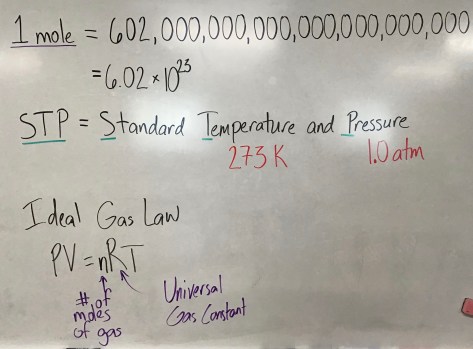 1 mole = 602,000,000,000,000,000,000,000
= 6.02 × 10²³
STP = Standard Temperature and Pressure
273 K 1.0 atm
Ideal Gas Law
PV = nRT
# of moles of gas
Universal Gas Constant